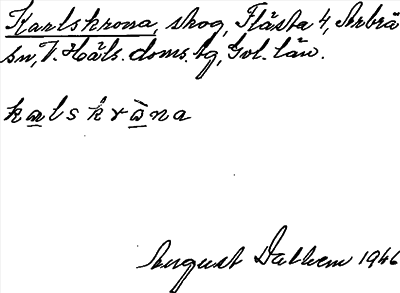 Karlskrona, skog, Flästa 4, Arbrå
sn, V. Häls. doms. tg, Gvl. län.
kalskròna
August Dalhem 1946